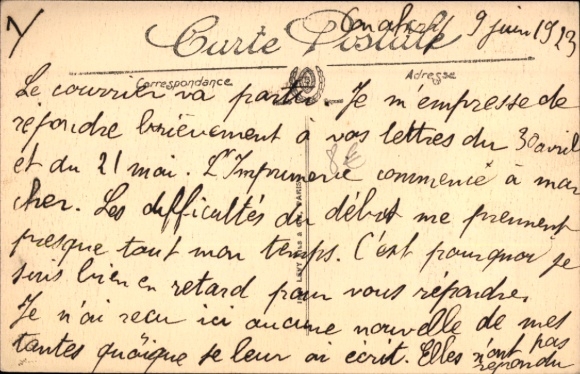 Conakry 9 juin 1923
Carte Postale
Correspondance
Adresse
Le courrier va partir. Je m'empresse de
répondre brièvement à vos lettres du 30 avril
et du 21 mai. L'Imprimerie commence à mar
cher. Les difficultés du début me prennent
presque tout mon temps. C'est pourquoi je
suis bien en retard pour vous répondre.
Je n'ai reçu ici aucune nouvelle de mes
tantes quoique je leur ai écrit. Elles n'ont pas
répondu